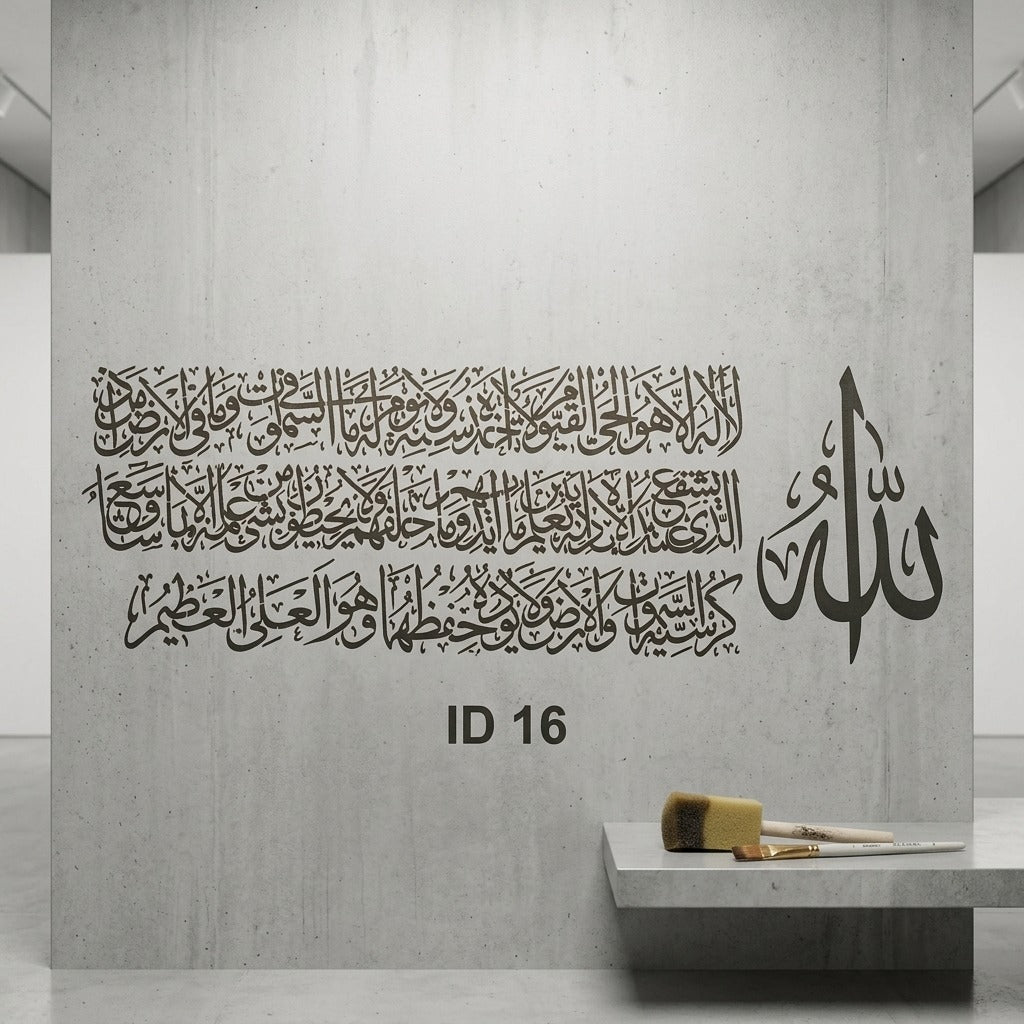 الله
لا إله إلا هو الحي القيوم لا تأخذه سنة ولا نوم له ما في السموات وما في الأرض من ذا
الذي يشفع عنده إلا بإذنه يعلم ما بين أيديهم وما خلفهم ولا يحيطون بشيء من علمه إلا بما شاء وسع
كرسيه السموات والأرض ولا يؤده حفظهما وهو العلي العظيم
ID 16